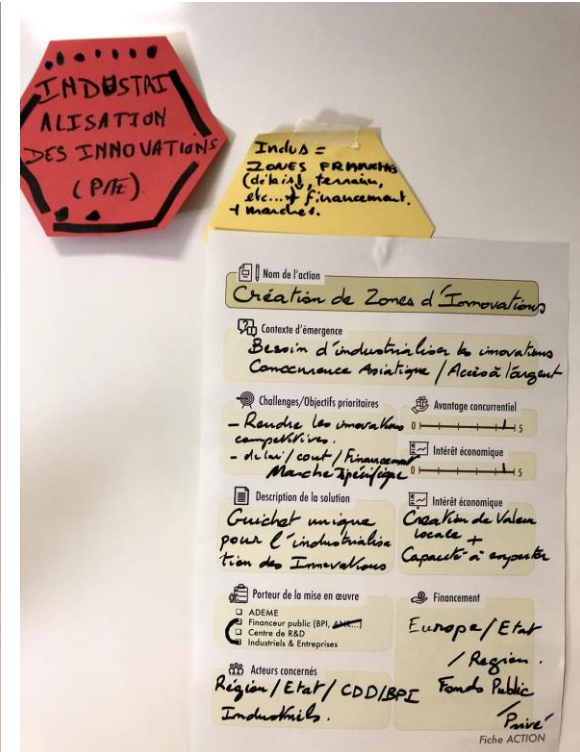 INDUSTRI
ALISATION
DES INNOVATIONS
(P/E).
Indus =
ZONES FRANCHES
(délais↓, terrain,
etc... + financement.
+ marches.
Nom de l'action
Création de Zones d'Innovations
Contexte d'émergence
Besoin d'industrialiser les innovations
Concurrence Asiatique / Accès à l'argent
Challenges/Objectifs prioritaires
- Rendre les innovations
compétitives.
- délai / cout / Financement
Marche Spécifique
Avantage concurrentiel
0 5
Intérêt économique
0 5
Description de la solution
Guichet unique
pour l'industrialisa
tion des Innovations
Intérêt économique
Création de Valeur
locale +
Capacité à exporter
Porteur de la mise en œuvre
ADEME
Financeur public (BPI, ANR...)
Centre de R&D
Industriels & Entreprises
Financement
Europe / Etat
/ Region.
Fonds Public
/ Privé
Acteurs concernés
Région / Etat / CDD/BPI
Industriels.
Fiche ACTION